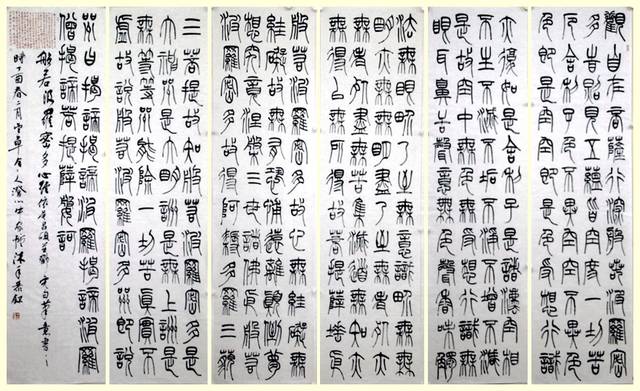 觀自在菩薩行深般若波羅蜜
多時照見五蘊皆空度一切苦
厄舍利子色不異空空不異色
色即是空空即是色受想行識
亦復如是舍利子是諸法空相
不生不滅不垢不淨不增不減
是故空中無色無受想行識無
眼耳鼻舌身意無色聲香味觸
法無眼界乃至無意識界無無
明亦無無明盡乃至無老死亦
無老死盡無苦集滅道無智亦
無得以無所得故菩提薩埵依
般若波羅蜜多故心無罣礙無
罣礙故無有恐怖遠離顛倒夢
想究竟涅槃三世諸佛依般若
波羅蜜多故得阿耨多羅三藐
三菩提故知般若波羅蜜多是
大神咒是大明咒是無上咒是
無等等咒能除一切苦真實不
虛故說般若波羅蜜多咒即說
咒曰揭諦揭諦波羅揭諦波羅
僧揭諦菩提薩婆訶
般若波羅蜜多心經
時丁酉春二月